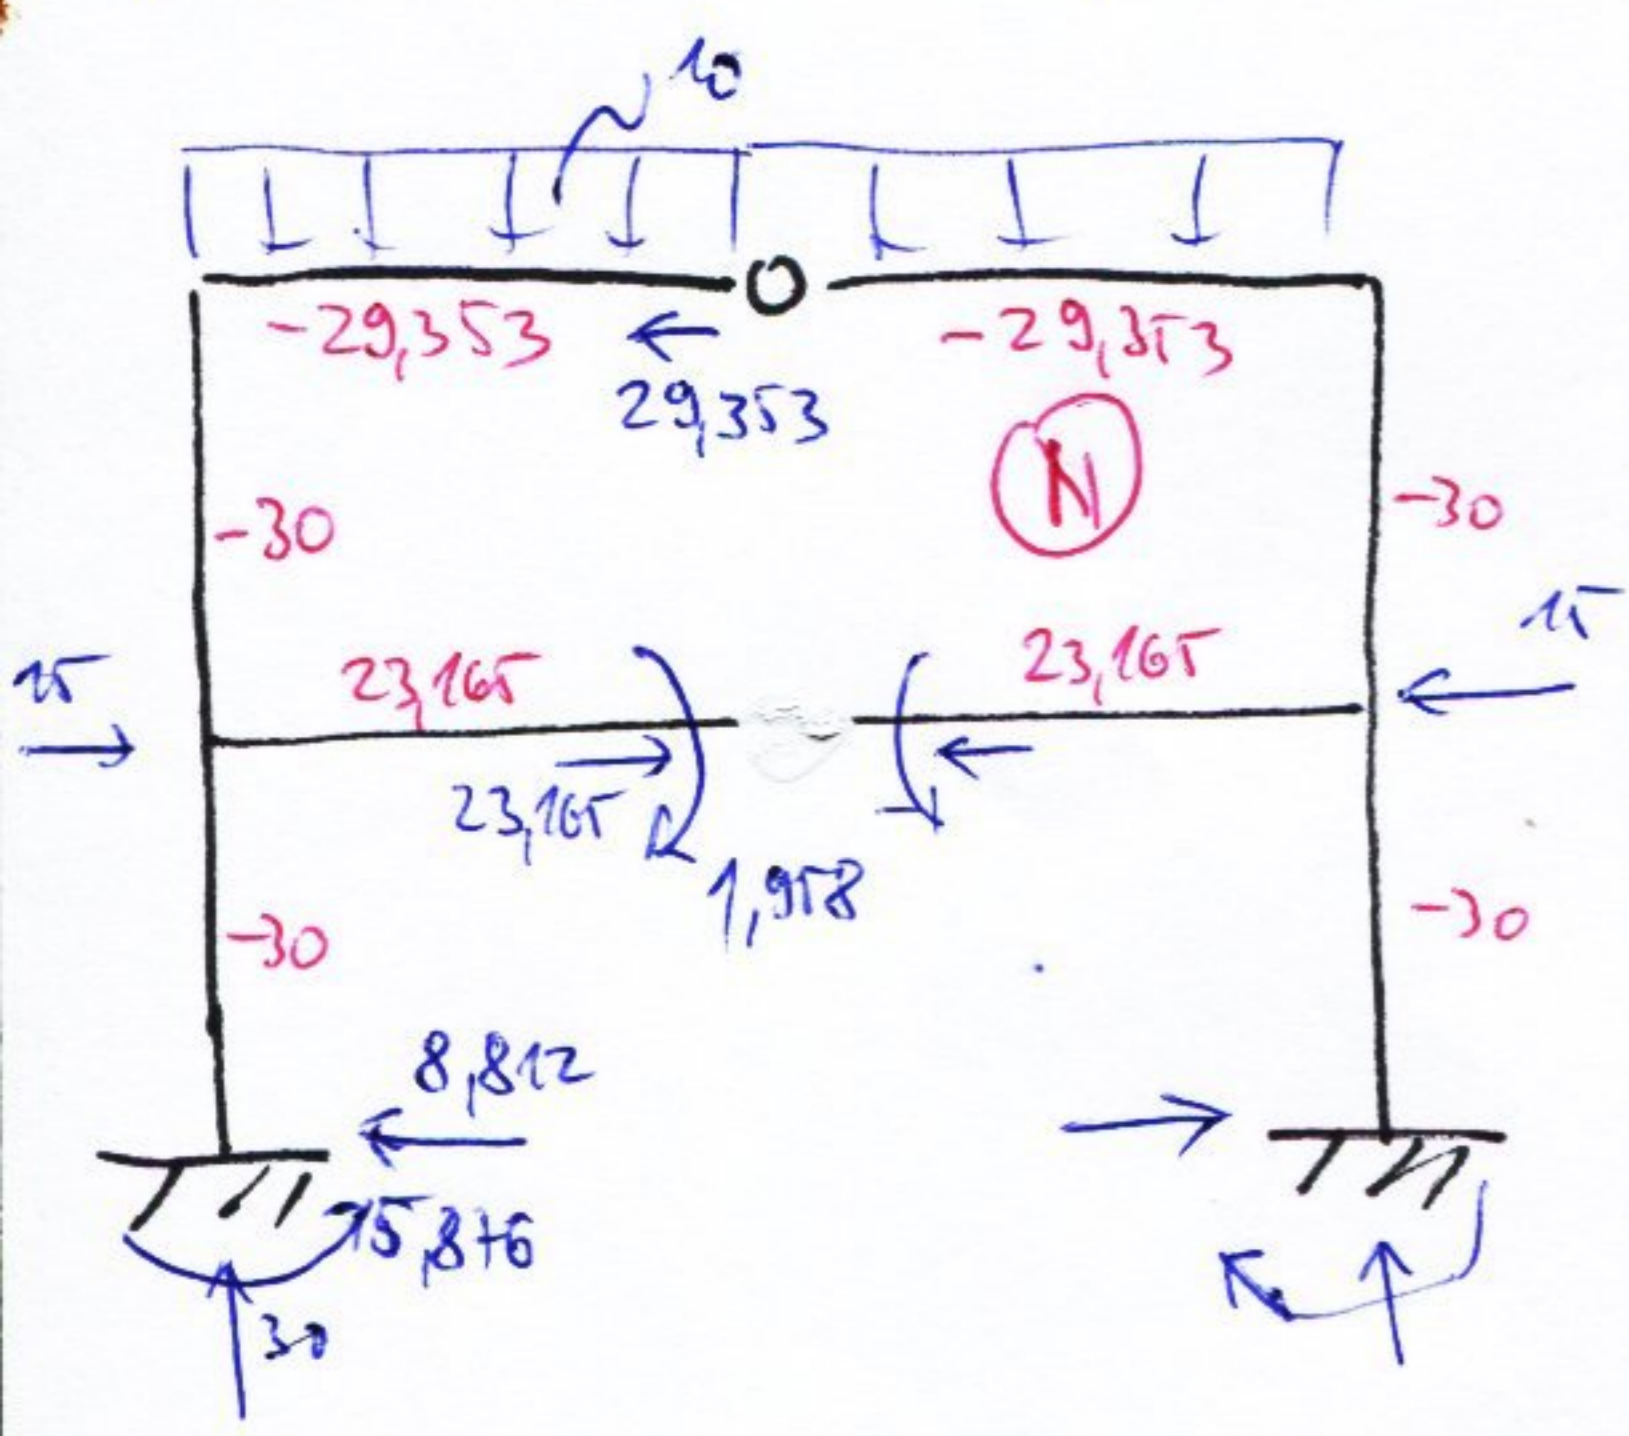 10
-29,353 -29,353
29,353
N
-30 -30
15
15 23,165 23,165
23,165
1,958
-30 -30
8,812
15,876
30